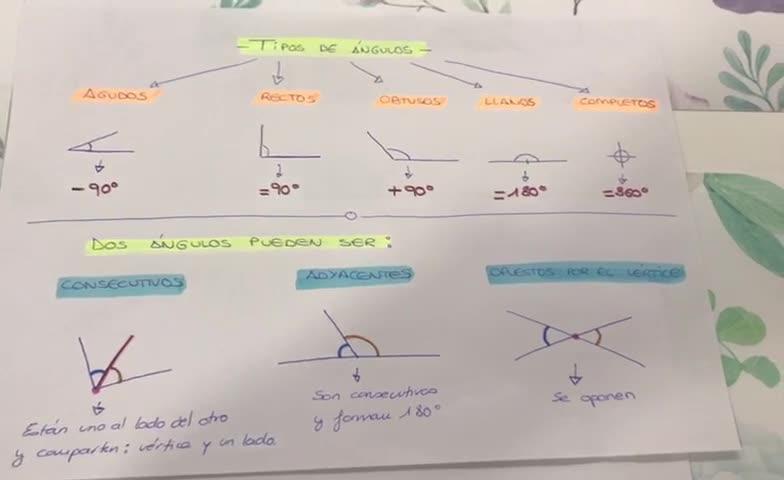 - TIPOS DE ÁNGULOS -
AGUDOS RECTOS OBTUSOS LLANOS COMPLETOS
- 90° = 90° + 90° = 180° = 360°
DOS ÁNGULOS PUEDEN SER:
CONSECUTIVOS ADYACENTES OPUESTOS POR EL VÉRTICE
Están uno al lado del otro
y comparten: vértice y un lado.
Son consecutivos
y forman 180°
Se oponen